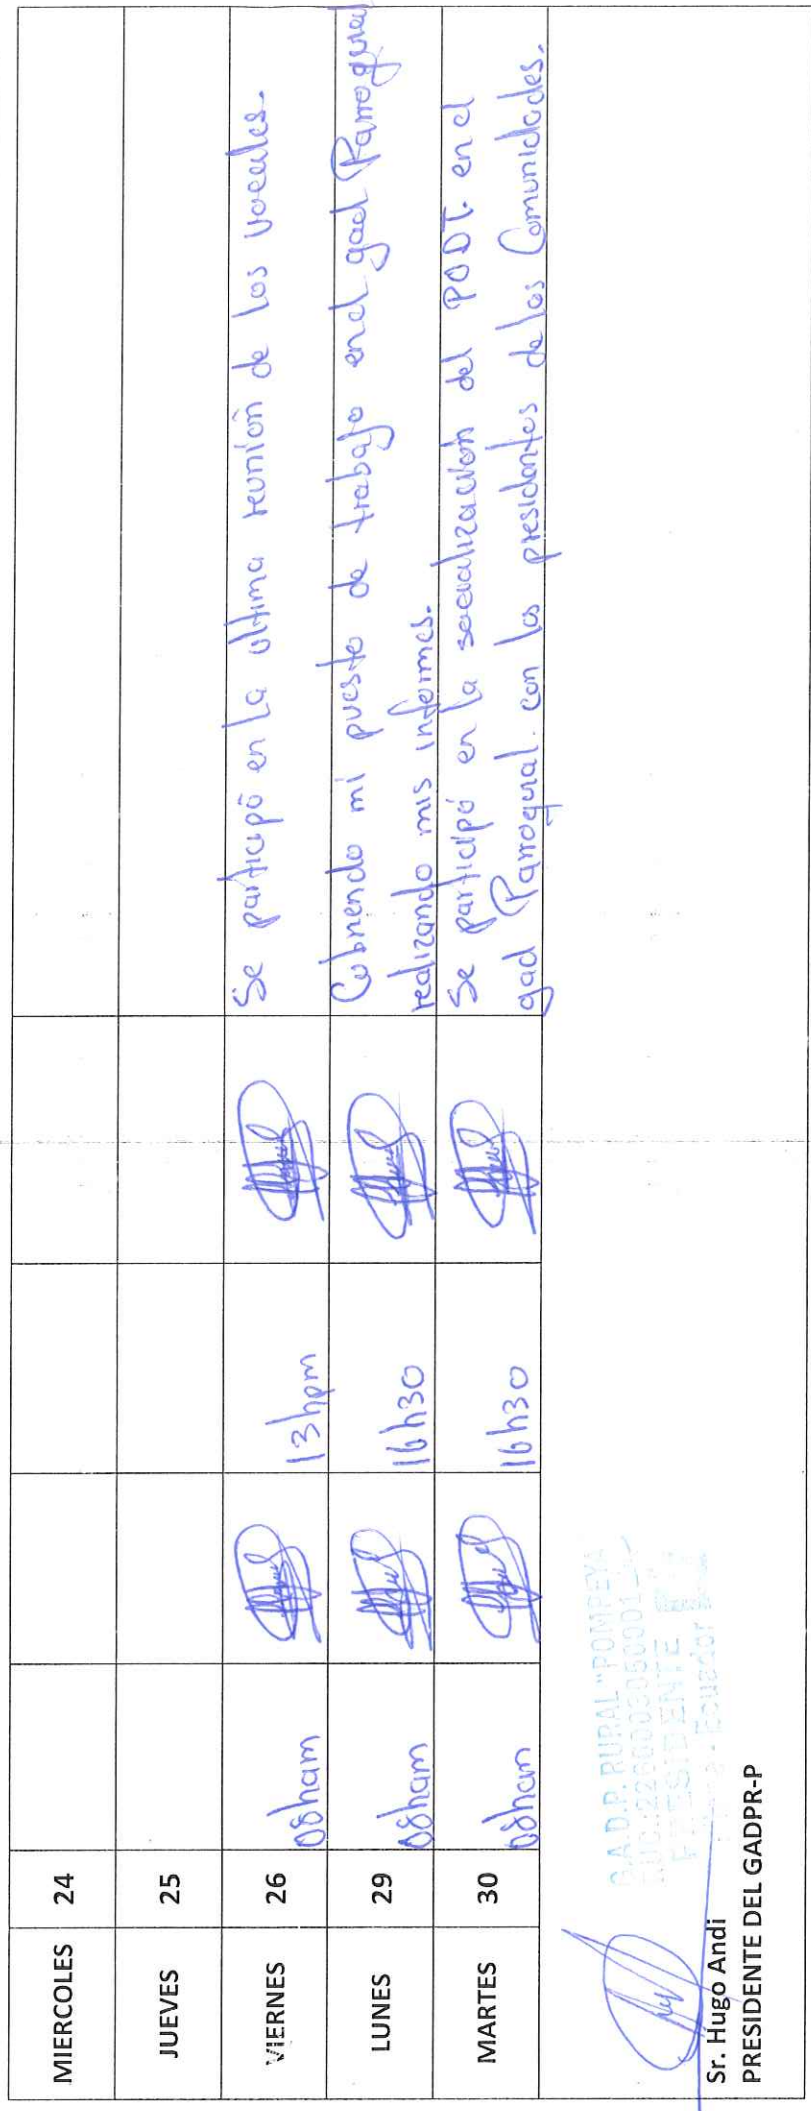 MIERCOLES 24
JUEVES 25
VIERNES 26 08ham 13hpm Se participó en la ultima reunión de los vocales.
LUNES 29 08ham 16h30 Cubriendo mi puesto de trabajo en el gad Parroquial
realizando mis informes.
MARTES 30 08ham 16h30 Se participó en la socialización del PDDT. en el
gad Parroquial. con los presidentes de las Comunidades.
G.A.D.P. RURAL "POMPEYA"
PRESIDENTE
Ecuador
Sr. Hugo Andi
PRESIDENTE DEL GADPR-P